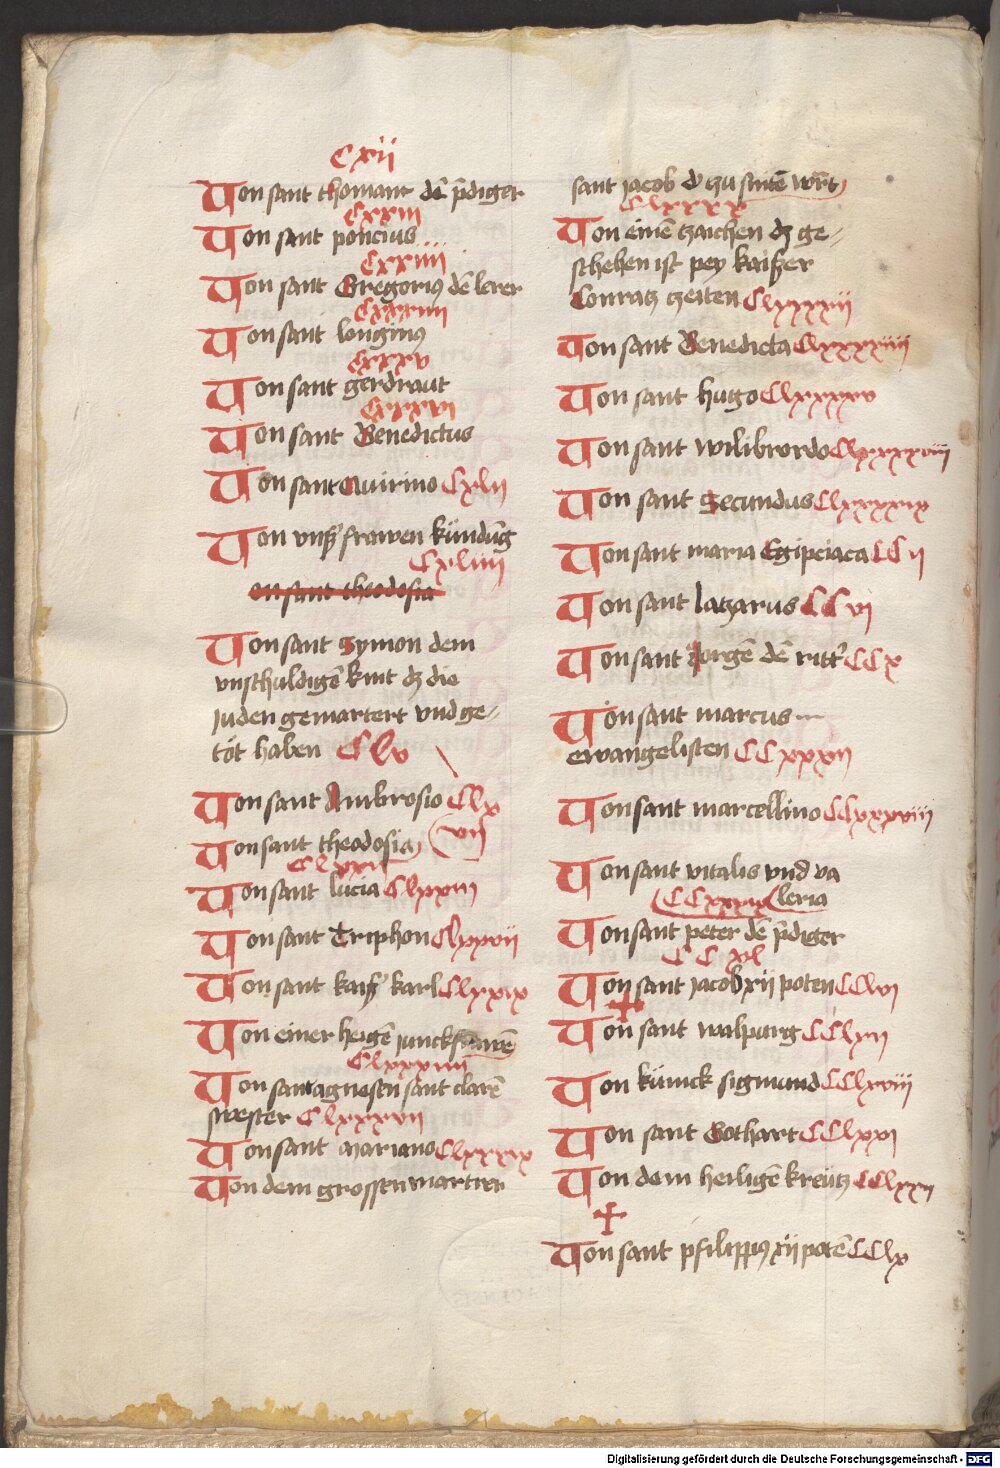 Cxii
Von sant thomanr dē p̄diger
Cxxiii
Von sant poncius
Cxxiiii
Von sant Gregorius dē lerer
Cxxxiiii
Von sant longinus
Cxxxv
Von sant gerdraut
Cxxxvi
Von sant Benedictus
Von sant Quirino Cxlii
Von vnß frawen kündūg
Cxliiii
on sant theodosia
Von sant Symon dem
vnschuldigē kint dz die
Juden gemartert vnd ge//
töt haben Clv
Von sant Ambrosio Clx
Von sant theodosia (vii)
Clxxii
Von sant lucia Clxxiii
Von sant Triphon Clxxvii
Von sant kaiß karl Clxxix
Von einer heigē junckfrawē
Clxxxiiii
Von sant agnesen sant clarē
swester Clxxxvii
Von sant Mariano Clxxxix
Von dem grossen martrer
sant jacob d' zu
Clxxxx
Von einē tzaichen dz ge//
schehen ist pey kaißer
Conratz tzeiten Clxxxxii
Von sant Benedicta Clxxxxiiii
Von sant hugo Clxxxxv
Von sant wilibrordo Clxxxxviii
Von sant Secundus Clxxxxix
Von sant maria Egipciaca CC ii
Von sant latzarus CC vi
Von sant Jorgē dē ritt' CCx
Von sant marcus
ewangelisten CCxxxii
Von sant marcellino CCxxxviii
Von sant vitalis vnd va
CCxxxix leria
Von sant peter dē p̄diger
CCxl
Von sant jacob xii poten CClvi
Von sant walpurg CClxii
Von künick sigmund CClxviii
Von sant Gothart CClxxi
Von dem heiligē kreütz CClxxii
Von sant pfilippus xii potē CClx
Digitalisierung gefördert durch die Deutsche Forschungsgemeinschaft - DFG